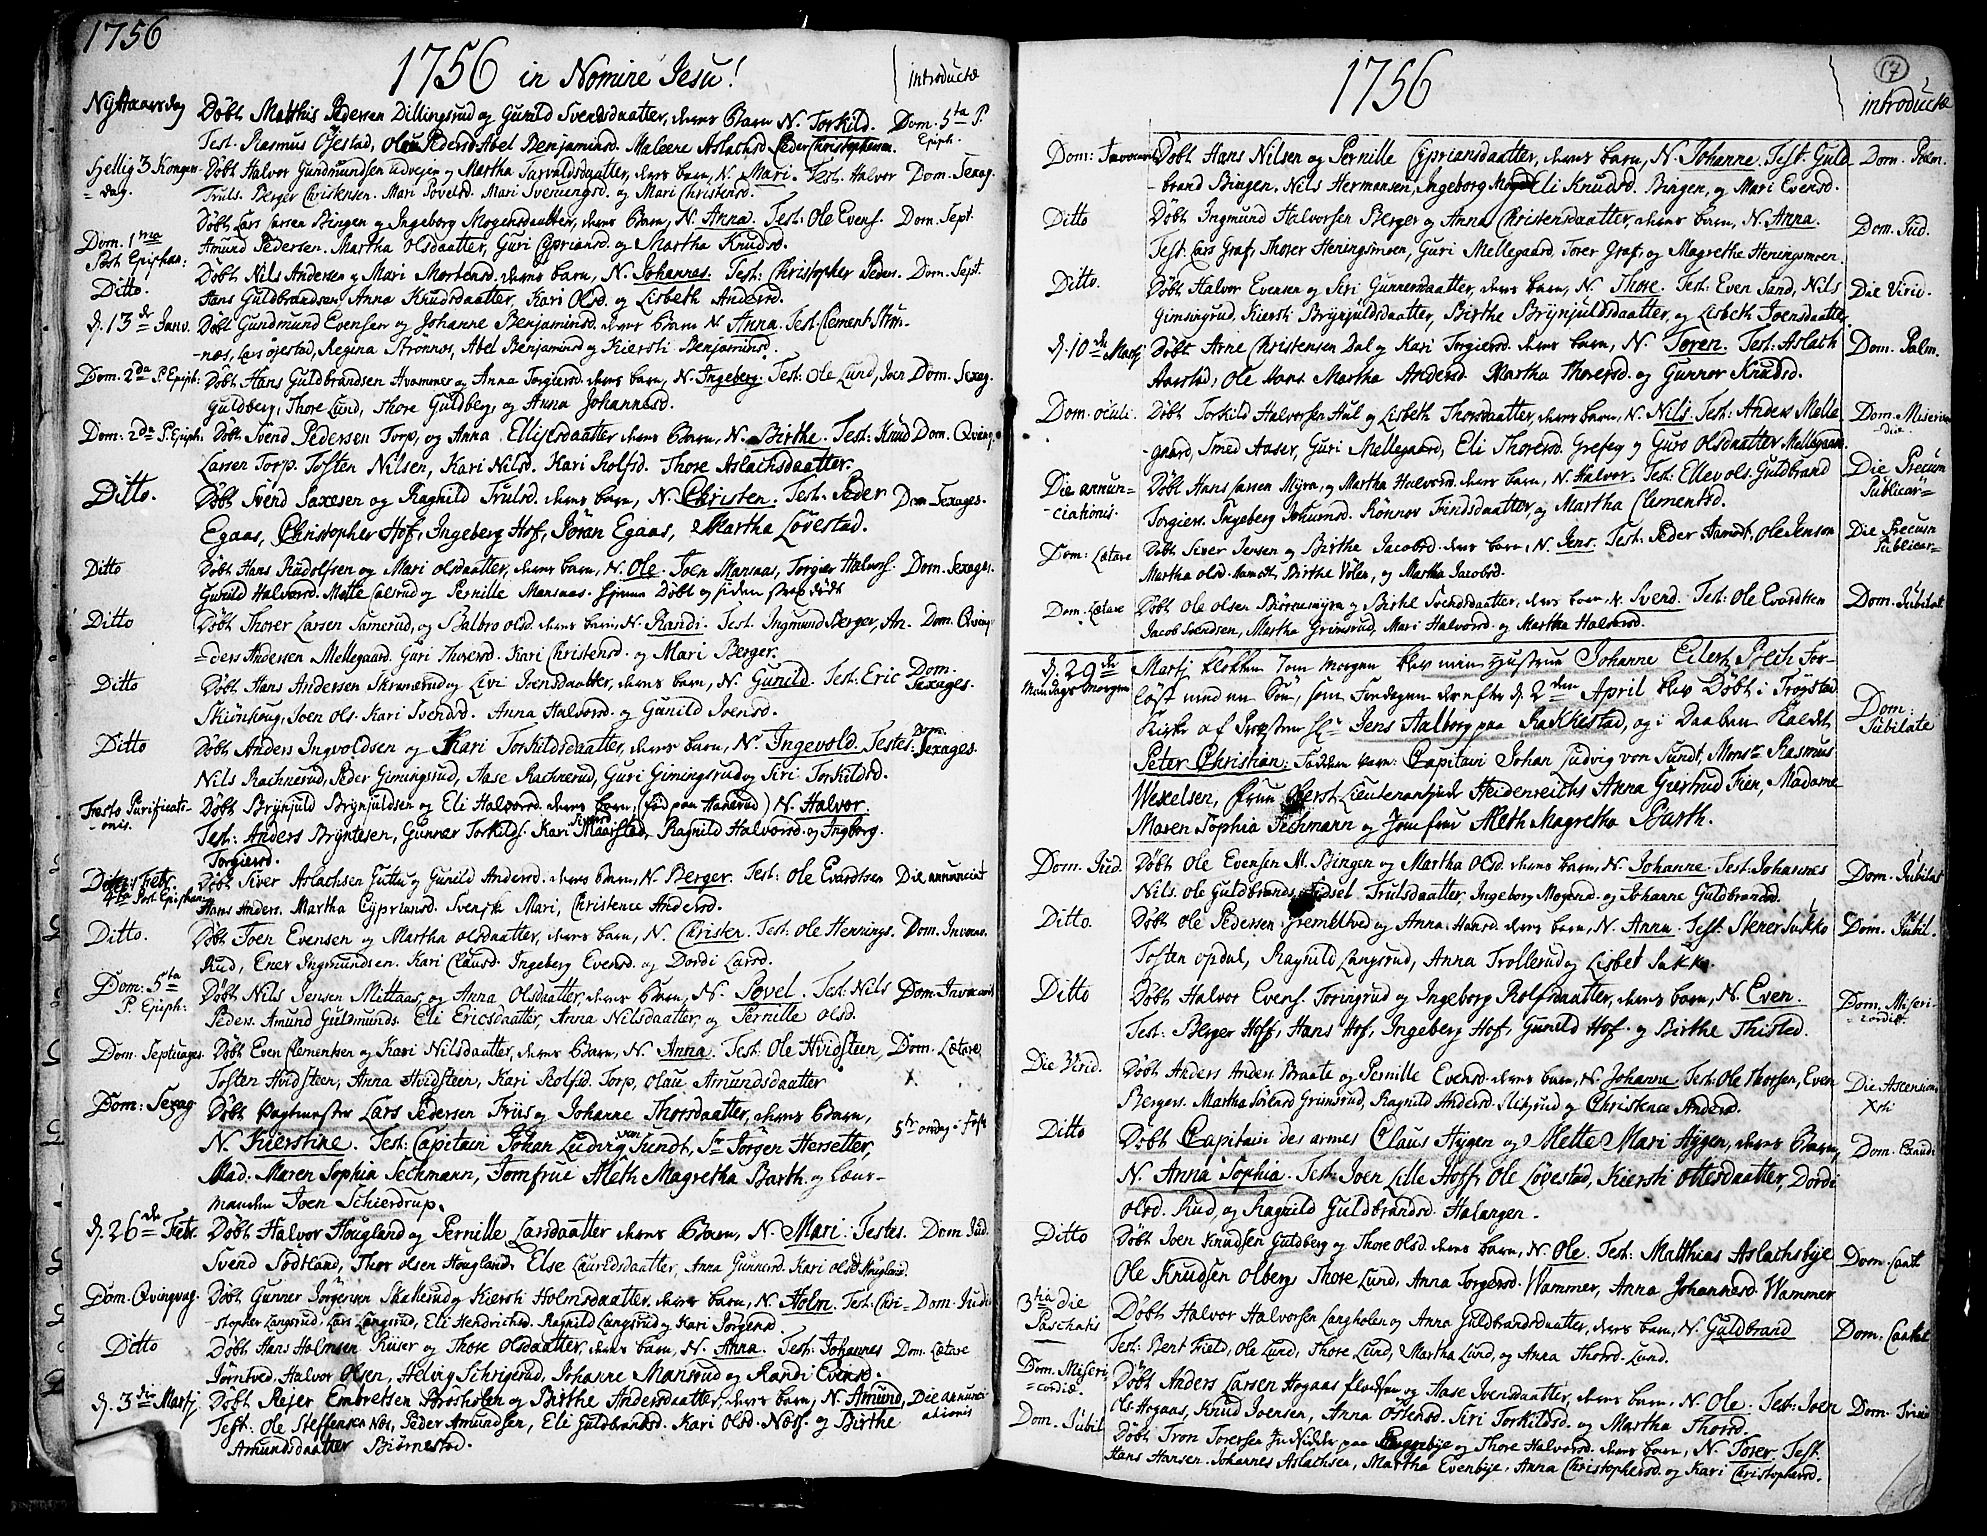 1756
1756 in Nomine Jesu!
introductæ
Nÿtaarsdag Døbt Matthis Pedersen Dillingsrud og Gunild Svendsdaatter, deres Barn N. Torkild. Dom. 5ta P. Epiph.
Test. Rasmus Øÿestad, Olau Pedersd Abel Benjaminsd. Maleene Aslachsd. Peder Christophersen.
Hellig 3 Konger dag Døbt Halvor Gundmundsen udvejen og Martha Tarvaldsdaatter, deres barn, N. Mari. Test. Halvor Dom. Sexag.
Truls. Berger Christensen. Mari Povelsd. Mari Sveningsd. og Mari Christensd.
Dom. 1ma Post Epiphan: Døbt Lars Larsen Bingen og Ingeborg Mogensdaatter, deres Barn, N. Anna. Test: Ole Evens. Dom. Sept.
Amund Pedersen. Martha Olsdaatter, Guri Cypriansd. og Martha Knudsd.
Ditto. Døbt Nils Andersen og Mari Mortensd. deres barn, N. Johannes. Test: Christopher Peders. Dom. Sept.
Hans Guldbrandsen, Anna Knudsdaatter, Kari Olsd. og Lisbeth Andersd.
d. 13de Janv. Døbt Gundmund Evensen og Johanne Benjaminsd. deres Barn N. Anna. Test. Clement Strø-
-næs, Lars Øjestad, Regina Strønnæs, Abel Benjaminsd og Kiersti Benjaminsd.
Dom. 2da P. Epiph: Døbt Hans Guldbrandsen Hvammer og Anna Torgiersd. deres barn, N. Ingeberg. Test: Ole Lund, Joen Dom. Sexag.
Guldberg, Thore Lund, Thore Guldberg, og Anna Johannesd.
Dom: 2da P. Epiph. Døbt Svend Pedersen Torp, og Anna Ellefsdaatter deres Barn, N. Birthe. Test. Knud Dom. Qvinq.
Larsen Torp. Tosten Nilsen, Kari Nilsd. Kari Rolfsd. Thore Aslachsdaatter.
Ditto. Døbt Svend Saxesen og Ragnild Trulsd. deres barn, N. Christen. Test. Peder Dom Sexages.
Egaas, Christopher Hof, Ingeberg Hof, Jøran Egaas, & Martha Løvestad.
Ditto Døbt Hans Rudolfsen og Mari Olsdaatter, deres barn, N. Ole. Joen Mansaas, Torgier Halvors. Dom. Sexages.
Gunild Halvorsd. Mette og Pernille Mansaas. Hjemme Døbt og siden strax dødt
Ditto Døbt Thorer Larsen Samerud, og Balbro Olsd. deres barn, N. Randi. Test. Ingmund Berger, An- Dom. Qvinq.
=ders Andersen Mellegaard. Guri Thoresd. Kari Christensd. og Mari Berger.
Ditto Døbt Hans Andersen og Livi Joensdaatter, deres barn, N. Gunild. Test. Eric Dom. Sexages.
Skiønhoug, Joen Ols. Kari Svendsd. Anna Halvorsd. og Gunild Joensd.
Ditto Døbt Anders Ingvoldsen og Kari Torkildsdaatter, deres barn, N. Ingevold. Testes: Dom. Sexages.
Nils Rachnerud, Peder Gimingsrud, Aase Rachnerud, Guri Gimingsrud og Siri Torkildsd.
Festo Purificati-onis. Døbt Brÿnjuld Brÿnjuldsen og Eli Halvorsd. deres barn, (fød paa Hanerud) N. Halvor.
Test: Anders Brÿntesen, Gunner Torkilds. Kari Maarstad, Ragnild Halvorsd. og Ingborg.
Torgiersd.
4ta Post. Epiphan. Døbt Siver Aslachsen Guttu og Gunild Andersd. deres Barn, N. Berger. Test: Ole Evardtsen Die annunciat
Hans Anders. Martha Cÿpriansd. Svensk Mari, Christence Andersd.
Ditto. Døbt Joen Evensen og Martha Olsdaatter, deres barn, N. Christen. Test: Ole Hennings. Dom. Invocav.
Rud, Ener Ingmundsen. Kari Clausd. Ingeberg Evensd. og Dordi Larsd.
Dom: 5ta P. Epiph: Døbt Nils Jensen Mittaas, og Anna Olsdaatter, deres Barn, N. Povel. Test: Nils Dom. Invocavit
Peders. Amund Guldmunds. Eli Ericsdaatter, Anna Nilsdaatter, og Pernille Olsd.
Dom. Septuages. Døbt Even Clementsen og Kari Nilsdaatter, deres Barn, N. Anna. Test: Ole Hvidsteen, Dom. Lætare
Tosten Hvidsteen, Anna Hvidsteen, Kari Rolfsd. Torp, Olau Amundsdaatter X
Dom: Sexag Døbt Lars Pedersen Friis og Johanne Thorsdaatter, deres Barn,
N. Kierstine. Test: Capitain Johan Ludvig von Sundt, Sr Jørgen Hersetter, 5te onsdag i Faste
Mad: Maren Sophia Techmann, Jomfrue Aleth Magretha Barth. og Cour-
manden Iver Schierdrup.
d. 26de Febr. Døbt Halvor Hougland og Pernille Larsdaatter deres Barn, N. Mari. Testes. Dom. Jud.
Svend Sødtland, Thor Olsen Hougland, Else Lauridsdaatter, Anna Gunnersd. Kari Olsd. Hougland.
Dom. Qvinqvag. Døbt Gunner Jørgensen Skallerud og Kiersti Holmsdaatter, deres barn, N. Holm. Test. Chri= Dom. Judi
-stopher Langsrud, Lars Langsrud, Eli Hendrichsd. Ragnild Langsrud og Kari Jørgensd.
Ditto Døbt Hans Holmsen Riiser og Thore Olsdaatter, deres barn, N. Anna. Test: Johannes Dom. Lætare
Jørntved, Halvor Olsen, Helvig Schrigsrud, Johanne Mansrud og Randi Evensd.
d. 3die Martj Døbt Rejer Embretsen Brosholen og Birthe Andersdaatter, deres barn, N. Amund, Die annunciationis
Test: Ole Steffensen Næs, Peder Amundsen, Eli Guldbrandsd. Kari Olsd. Næs. og Birthe
Amundsdaatter Biørnestad.
1756
17
introductæ
Dom: Invocavit Døbt Hans Nilsen og Pernille Cypriansdaatter, deres barn, N. Johanne. Test. Guld- Dom. Palm.
-brand Bingen, Nils Hermansen, Ingeborg Eli Knudsd. Bingen, og Mari Evensd.
Ditto Døbt Ingmund Halvorsen Berger og Anna Christensdaatter, deres barn, N. Anna. Dom. Jud.
Test. Lars Graf, Thorer Heningsmoen, Guri Mellegaard, Torer Graf, og Magrethe Heningsmoen.
Ditto. Døbt Halvor Evensen og Siri Gunnersdaatter, deres barn, N. Thore. Test. Even Sand, Nils Die Virid.
Gimsingrud, Kiersti Brÿnjuldsdaatter, Birthe Brÿnjuldsdaatter, og Lisbeth Joensdaatter.
d. 10de Martj Døbt Arne Christensen Dal og Kari Torgiersd. deres barn, N. Toren. Test: Aslach Dom. Palm.
Aarstad, Ole Hans. Martha Andersd. Martha Thoresd. og Gunnor Knudsd.
Dom. Oculi. Døbt Torkild Halvorsen Hul og Lisbeth Thorsdaatter, deres barn, N. Nils. Test: Anders Melle Dom. Misericordiæ.
-gaard, Smed Aaser, Guri Mellegaard, Eli Thoresd. Grefsey og Guro Olsdaatter Mellegaard.
Die annun-ciationis. Døbt Hans Larsen Myra, og Martha Halvorsd. deres barn, N. Halvor. Test. Ellev Ols. Guldbrand Die Precum Publicar=
Torgiers. Ingeberg Rønnov Findsdaatter, og Martha Clementsd.
Dom: Lætare Døbt Siver Jensen og Birthe Jacobsd. deres barn, N. Jens. Test. Peder Aamodt, Ole Jenson Die Precum Publicar=
Martha Olsd. Aamodt, Birthe Volen, og Martha Jacobsd.
Dom. Lætare Døbt Ole Olsen Biørnemÿra og Birthe Svendsdaatter, deres barn, N. Svend. Test: Ole Evardtsen Dom. Jubilat
Jacob Svendsen, Martha Grimsrud, Mari Halvorsd. og Martha Halvorsd.
d. 29de Mandags Morgen Martj klokken 7 om morgen blev min Hustrue Johanne Eilertz Pech For-
løst med en Søn, som Fredagen derefter d. 2den April blev Døbt i Trøgstad Dom: Jubilate
Kirke af Præsten Hr Jens Aalborg paa Rakkestad, og i Daaben kaldet
Peter Christian. Fadderne vare: Capitain Johan Ludvig von Sundt, Monsr Rasmus
Wexelsen, Frue Oberst-Lieutenantinde Heidenreichs Anna Giertrud Fien, Madame
Maren Sophia Techmann og Jomfrue Aleth Magretha Barth.
Dom. Jud. Døbt Ole Evensen M. Bingen og Martha Olsd. deres barn, N. Johanne. Test. Johannes Dom. Jubilat
Nils. Ole Guldbrands. Sidsel Trulsdaatter, Ingeberg Mogensd. og Johanne Guldbrandsd.
Ditto. Døbt Ole Pedersen og Anna Hansd. deres barn, N. Anna. Test. Stener Sukko Dom. Jubil.
Tosten Opdal, Ragnild Langsrud, Anna Trollerud og Lisbet Sukko.
Ditto Døbt Halvor Evens. Toringrud og Ingeborg Rolfsdaatter, deres barn, N. Even. Dom. Misericordiæ.
Test: Berger Hoff, Hans Hof, Ingeberg Hof, Gunild Hof og Birthe Thisted.
Die Virid. Døbt Anders Anders. Braate og Pernille Evensd. deres barn, N. Johanne. Test. Ole Thorsen, Even Die Ascension Xsti
Bergers. Martha Grimsrud, Ragnild Andersd. og Christence Andersd.
Ditto Døbt Capitain des armes Claus Hÿgen og Mette Mari Hÿgen, deres Barn, Dom. Exaudi
N. Anna Sophia. Test: Joen Lille Hoff, Ole Løvestad, Kiersti Ottesdaatter, Dordi
Olsd. Rud, og Ragnild Guldbrandsd. Halangen.
Ditto Døbt Joen Knudsen Guldberg og Thore Olsd. deres barn, N. Ole. Test: Matthias Aslachsbye Dom. Cant
Ole Knudsen Olberg, Thore Lund, Anna Torgersd. Wammer, Anna Johannesd Wammer
3tia die Paschatis Døbt Halvor Halvorsen Langholen og Anna Guldbrandsdaatter, deres barn, N. Guldbrand Dom. Cantat
Test: Bent Field, Ole Lund, Thore Lund, Martha Lund, og Anna Thorsd. Lund.
Dom. Misericordiæ. Døbt Anders Larsen Hogaas og Aase Ivensdaatter, deres barn, N. Ole. Test: Joen Dom. Trinit
Ols Hogaas, Knud Joensen, Anna Ostensd. Siri Torkildsd. og Martha Thorsd.
Dom. Jubil. Døbt Tron Toresen Indsidder paa og Thore Halvorsd. deres barn, N. Torer. Test.
Hans Hansen. Johannes Aslachsen, Martha Evenbÿe, Anna Christophersd. og Kari Christophersd.